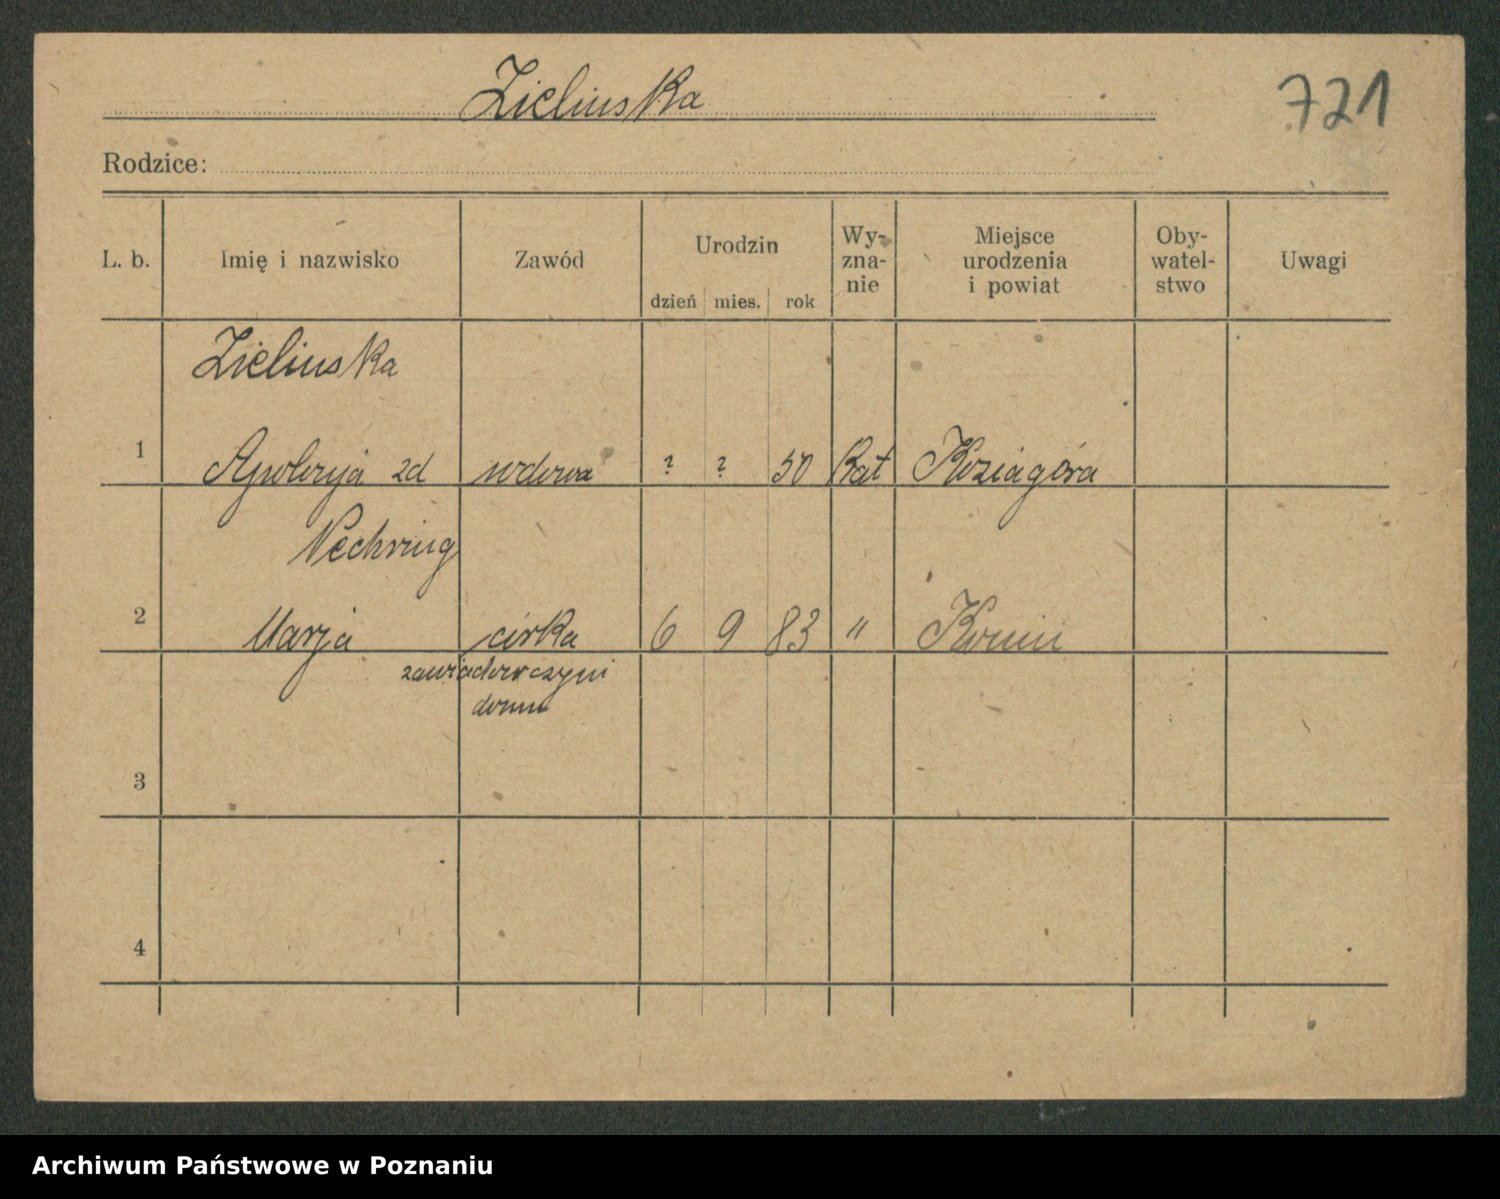 Zielinska
721
Rodzice:
L. b. Imię i nazwisko Zawód Urodzin dzień mies. rok Wy-zna-nie Miejsce urodzenia i powiat Oby-watel-stwo Uwagi
Zielinska
1 Apolonja zd wdowa ? ? 50 Kat Koziagóra
Nechring
2 Marja córka 6 9 83 " Konin
zawiadowczyni
domu
3
4
Archiwum Państwowe w Poznaniu